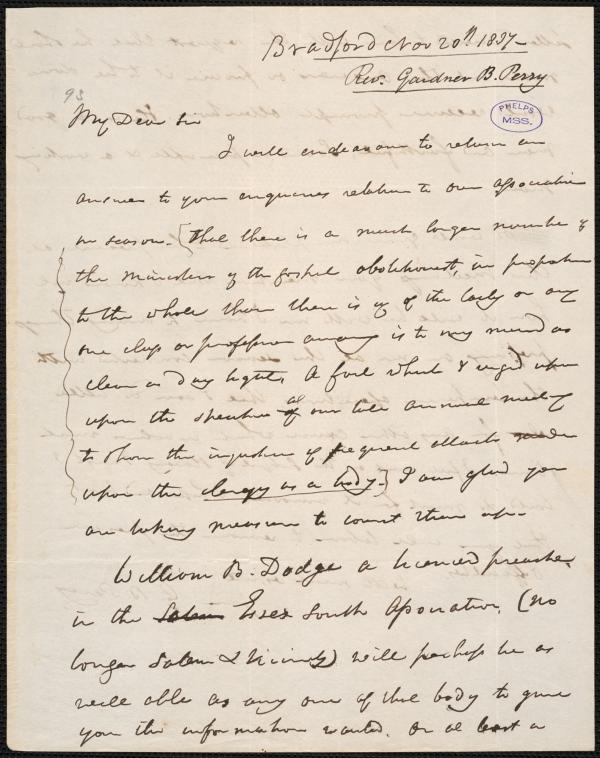 Bradford Nov 20th 1837
Rev. Gardner B. Perry
93
PHELPS
MSS.
My Dear Sir
I will endeavour to return an
answer to your enquiries relation to our association
in season. [That there is a much larger number of
the ministers of the gospel abolitionist, in proportion
to the whole than there is of the laity or any
one class or profession among is to my mind as
clear as day light. A fact which I urged upon
upon the at our late annual meeting
to show the injustice of frequent attacks made
upon the clergy as a body.] I am glad you
are taking measures to count them up.
William B. Dodge a licenced preacher
in the Salem Essex South Association, (no
longer Salem & Vicinity) will perhaps be as
well able as any one of that body to give
you the information wanted. or at least a